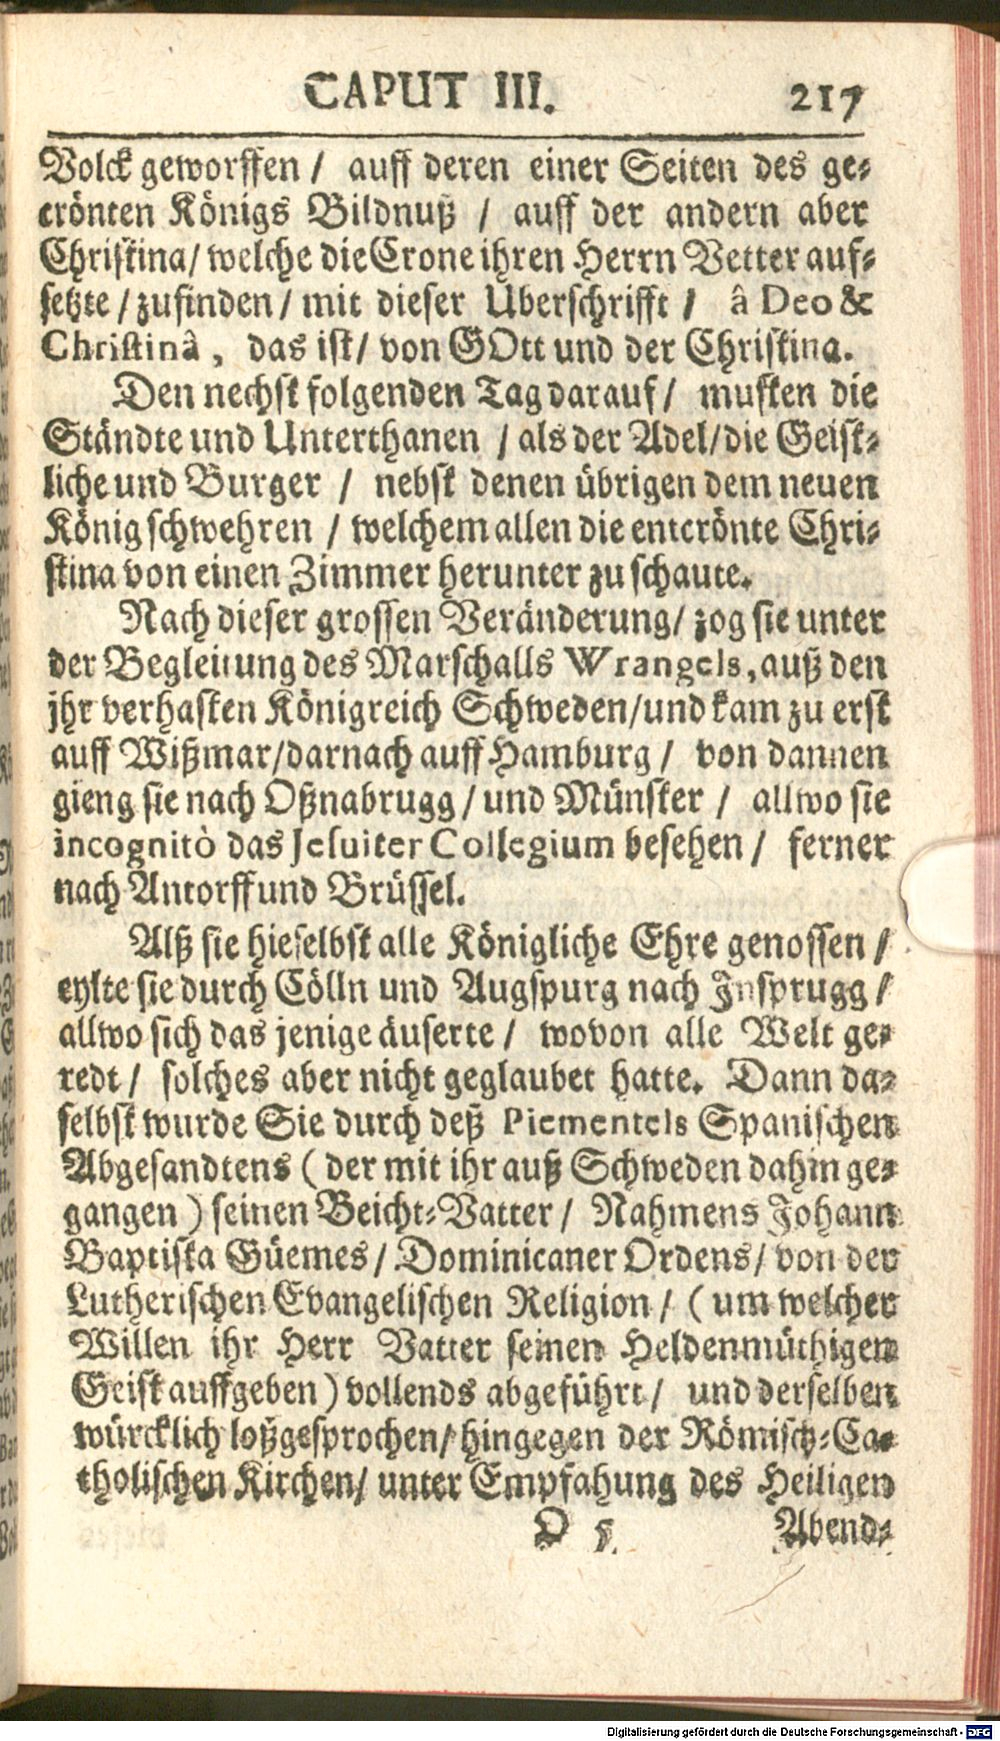 CAPUT III. 217
Volck geworffen / auff deren einer Seiten des ge-
crönten Königs Bildnuß / auff der andern aber
Christina / welche die Crone ihren Herrn Vetter auf-
setzte / zufinden / mit dieser Uberschrifft / â Deo &
Christinâ, das ist / von GOtt und der Christina.
Den nechst folgenden Tag darauf / musten die
Ständte und Unterthanen / als der Adel / die Geist-
liche und Burger / nebst denen übrigen dem neuen
König schwehren / welchem allen die entcrönte Chri-
stina von einen Zimmer herunter zu schaute.
Nach dieser grossen Veränderung / zog sie unter
der Begleitung des Marschalls Wrangels, auß den
jhr verhasten Königreich Schweden / und kam zu erst
auff Wißmar / darnach auff Hamburg / von dannen
gieng sie nach Oßnabrugg / und Münster / allwo sie
incognitò das Jesuiter Collegium besehen / ferner
nach Antorff und Brüssel.
Alß sie hieselbst alle Königliche Ehre genossen /
eylte sie durch Cölln und Augspurg nach Insprugg /
allwo sich das jenige äuserte / wovon alle Welt ge-
redt / solches aber nicht geglaubet hatte. Dann da-
selbst wurde Sie durch deß Piementels Spanischen
Abgesandtens ( der mit ihr auß Schweden dahin ge-
gangen ) seinen Beicht-Vatter / Nahmens Johann
Baptista Güemes / Dominicaner Ordens / von der
Lutherischen Evangelischen Religion / ( um welcher
Willen ihr Herr Vatter seinen Heldenmüthigen
Geist auffgeben ) vollends abgeführt / und derselben
würcklich loßgesprochen / hingegen der Römisch-Ca-
tholischen Kirchen / unter Empfahung des Heiligen
O 5 Abend-
Digitalisierung gefördert durch die Deutsche Forschungsgemeinschaft - DFG